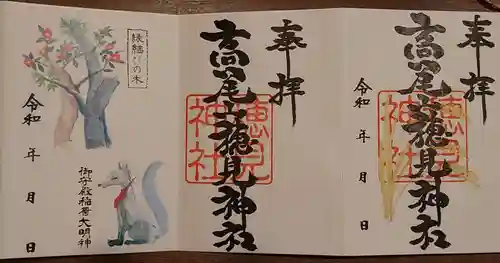 奉拝
高尾山穂見神社
穂見
神社
令和 年 月 日
奉拝
高尾山穂見神社
穂見
神社
縁結びの木
御守殿稲荷大明神
令和 年 月 日